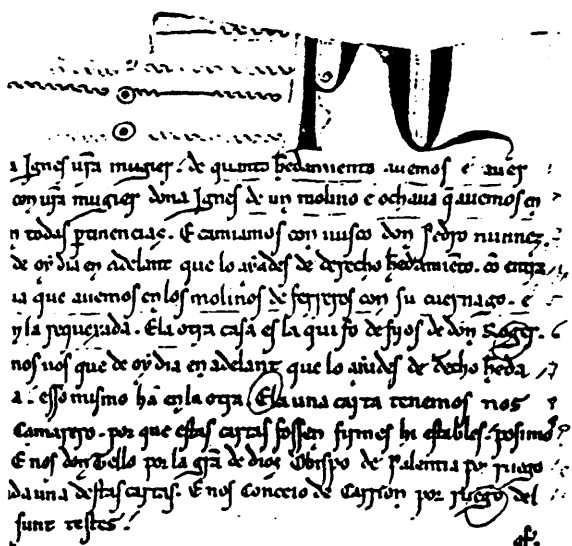 a Ignes ura mugier. de quanto hedamiento avemos e aver
con ura mugier dona Ignes de un molino e ochava q avemos en
n todas ptinencias. E camiamos con vusco don Pedro nunnez.
de oy dia en adelant que lo ayades de derecho hedamieto. co entra
va que avemos en los molinos de ferreros con su cuernago. e
y la requexada. E la otra casa es la qui fo de fijos de don
nos vos que de oy dia en adelant que lo ayades de decho heda
a. esso mismo ha en la otra. E la una carta tenemos nos
Camarero. por que estas cartas fossen firmes hi estables. posimo
E nos don Tello por la gra de dios Obispo de Palentia por ruego
da una destas cartas. E nos Conceio de Carrion por ruego del
sunt testes.